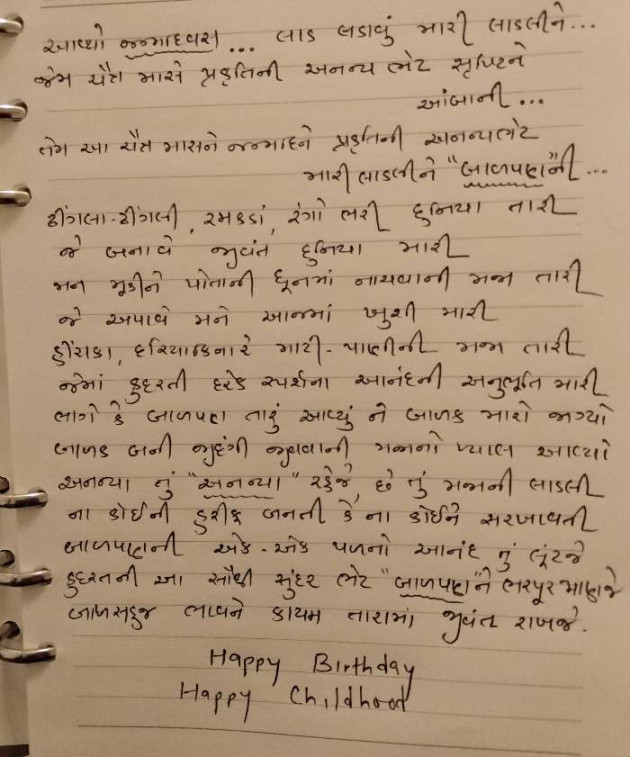 આવ્યો જન્મદિવસ... લાડ લડાવું મારી લાડલીને...
જેમ ચૈત્ર માસે પ્રકૃતિની અનન્ય ભેટ સૃષ્ટિને
આંબાની...
તેમ આ ચૈત્ર માસને જન્મદિને પ્રકૃતિની અનન્ય ભેટ
મારી લાડલીને "બાળપણ"ની...
ઢીંગલા-ઢીંગલી, રમકડાં, રંગો ભરી દુનિયા તારી
જે બનાવે જીવંત દુનિયા મારી
મન મૂકીને પોતાની ધૂનમાં નાચવાની મજા તારી
જે અપાવે મને આજમાં ખુશી મારી
હીંચકા, દરિયાકિનારે માટી-પાણીની મજા તારી
જેમાં કુદરતી દરેક સ્પર્શના આનંદની અનુભૂતિ મારી
લાગે કે બાળપણ તારું આવ્યું ને બાળક મારો જાગ્યો
બાળક બની જીંદગી જીવવાની મજાનો ખ્યાલ આવ્યો
અનન્યા તું "અનન્યા" રહેજે, છે તું મજાની લાડલી
ના કોઈની હરીફ બનતી કે ના કોઈને સરખાવતી
બાળપણની એક-એક પળનો આનંદ તું લૂંટજે
કુદરતની આ સૌથી સુંદર ભેટ "બાળપણ"ને ભરપૂર માણજે
બાળસહજ ભાવને કાયમ તારામાં જીવંત રાખજે.
Happy Birthday
Happy Childhood